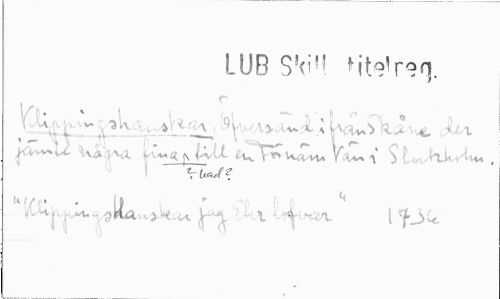 LUB Skill titelreg.
Klippingshanskar, Öfversänd ifrån Skåne der
jämte några fina, till en Förnäm Vän i Stockholm.
? had?
"Klippingshanskar jag Ehr lofvar" 1736